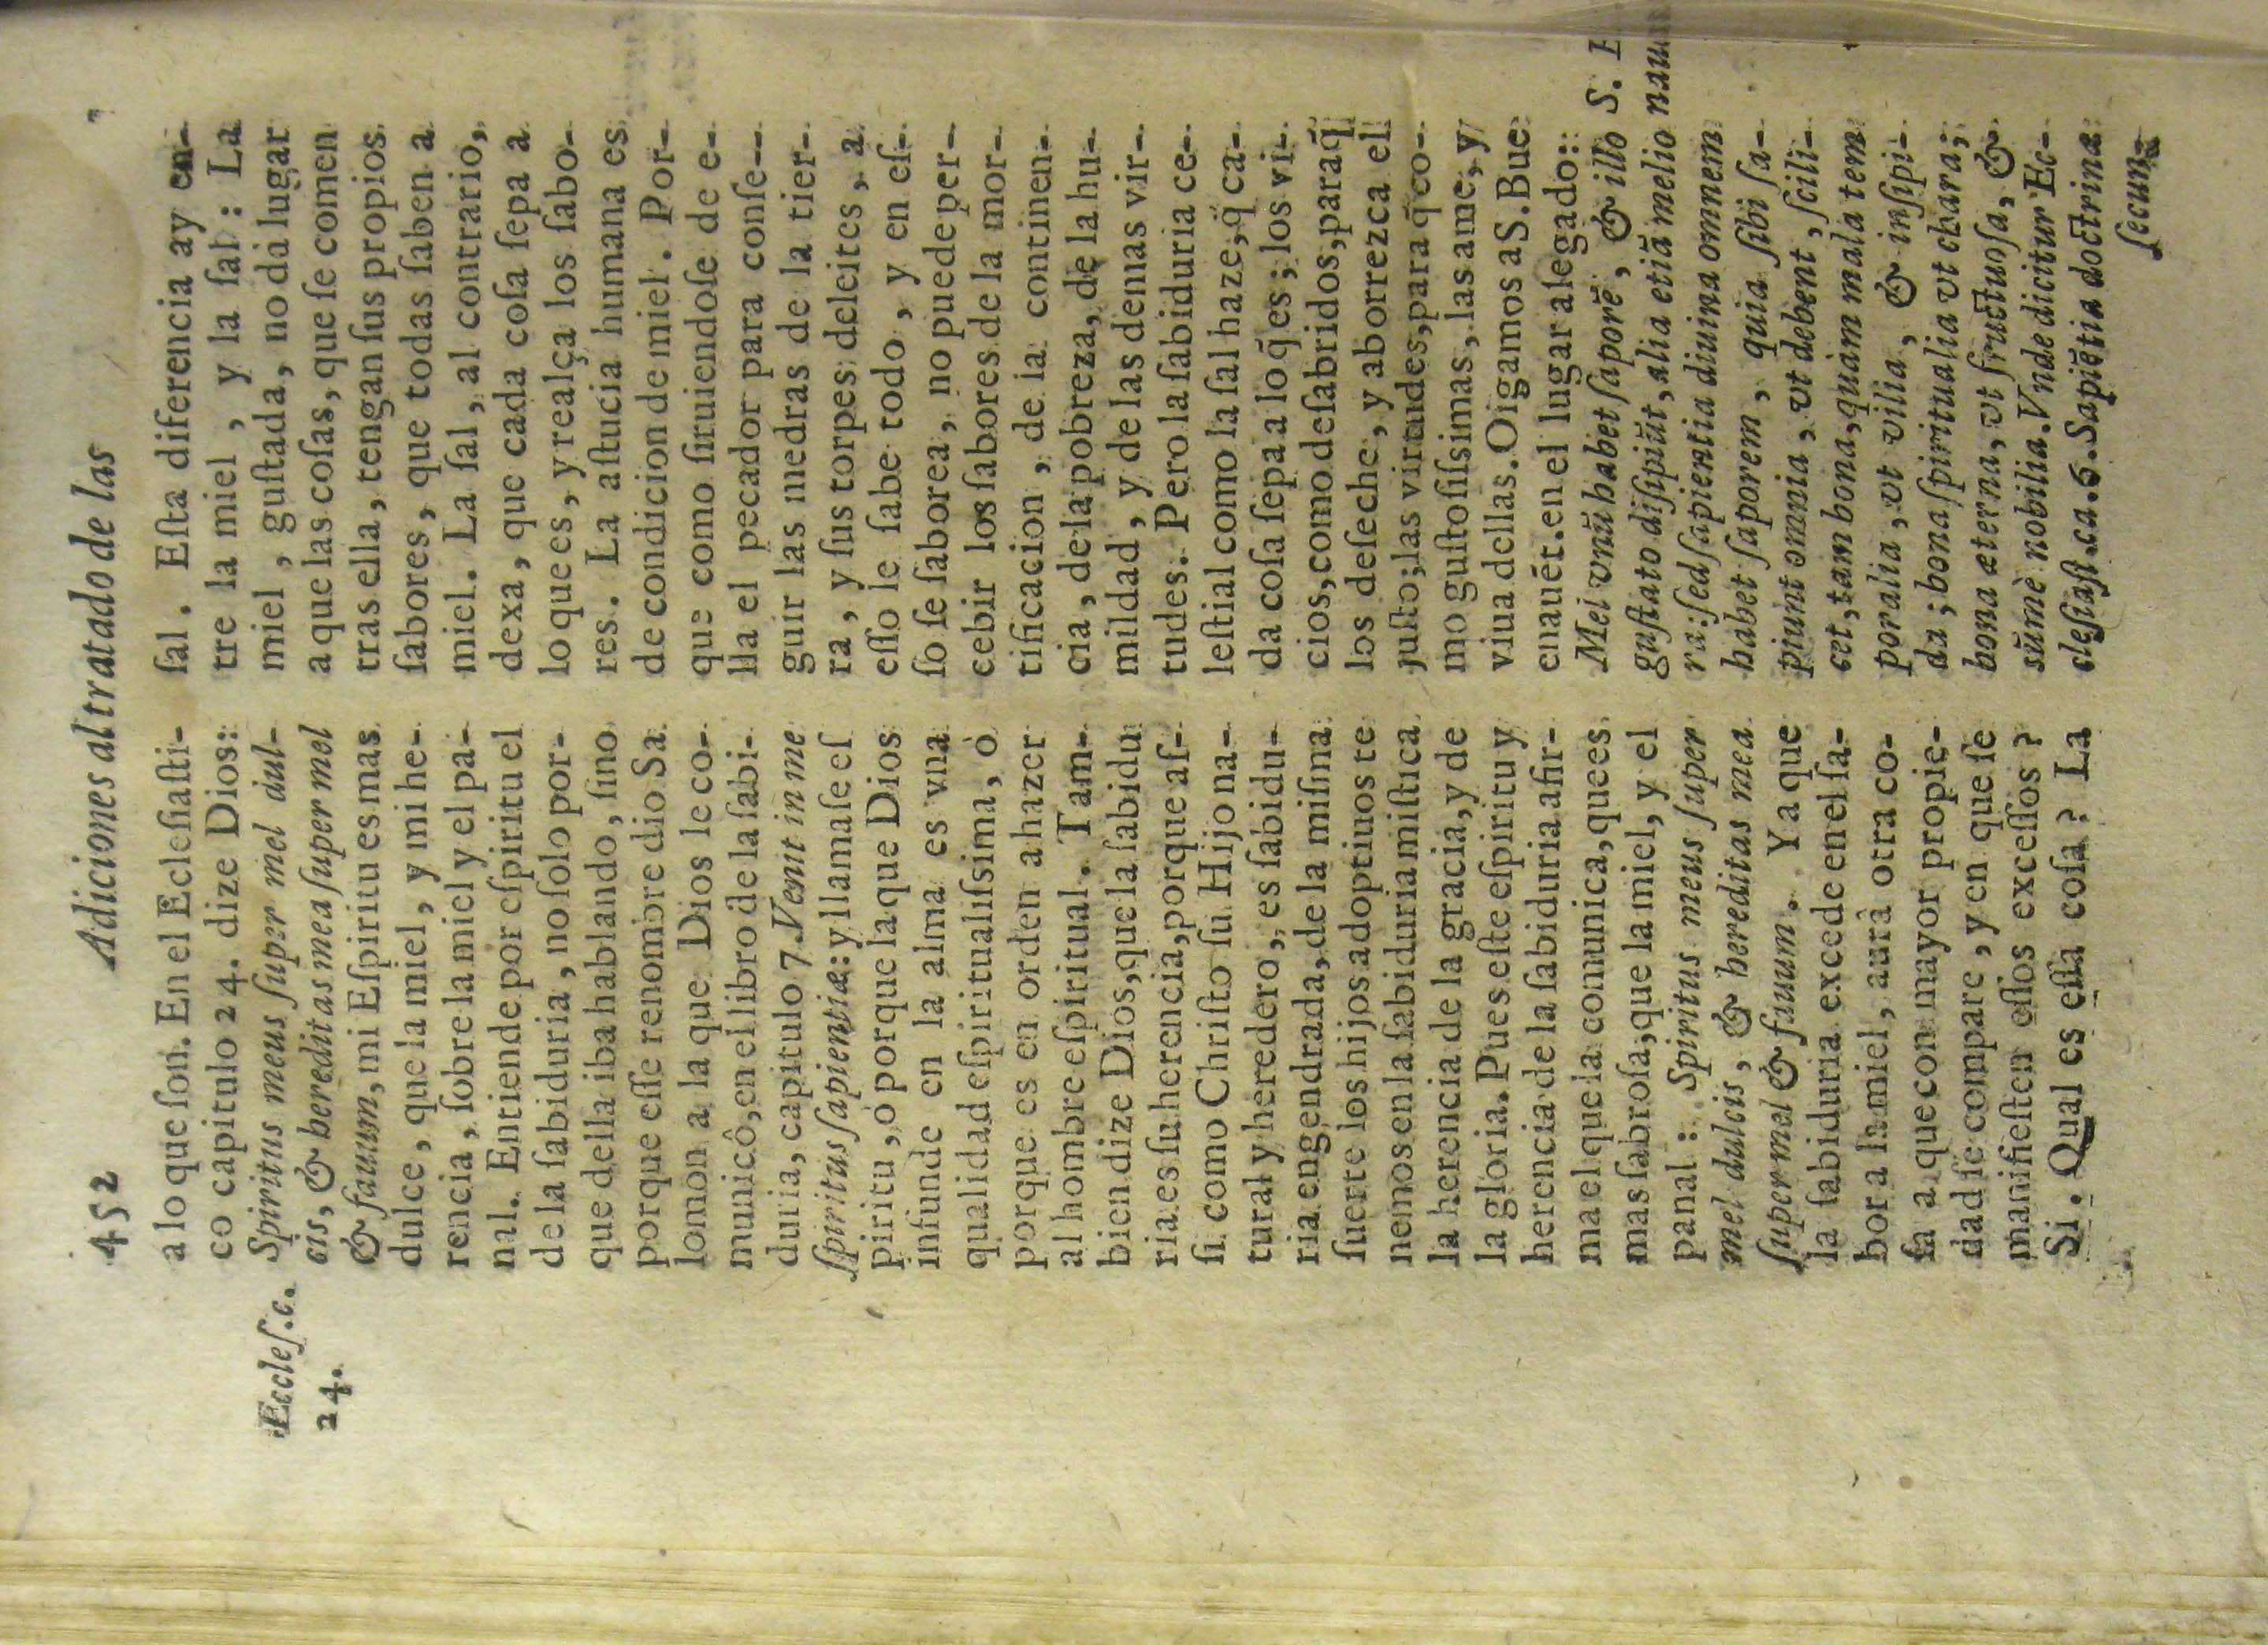 452
Adiciones al tratado de las
a lo que ſon. En el Ecleſiaſti-
co capitulo 24. dize Dios:
Spiritus meus ſuper mel dul-
cis, & hereditas mea ſuper mel
& fauum, mi Eſpiritu es mas
dulce, que la miel, y mi he-
rencia, ſobre la miel y el pa-
nal. Entiende por eſpiritu el
de la ſabiduria, no ſolo por-
que della iba hablando, ſino
porque eſſe renombre dio Sa
lomon a la que Dios le co-
municô, en el libro de la ſabi-
duria, capitulo 7. Venit in me
ſpiritus ſapientiæ: y llamaſe eſ
piritu, ò porque la que Dios
infunde en la alma es vna
qualidad eſpiritualiſsima, ò
porque es en orden a hazer
al hombre eſpiritual. Tam-
bien dize Dios, que la ſabidu
ria es ſu herencia, porque aſ-
ſi como Chriſto ſu Hijo na-
tural y heredero, es ſabidu-
ria engendrada, de la miſma
ſuerte los hijos adoptiuos te
nemos en la ſabiduria miſtica
la herencia de la gracia, y de
la gloria. Pues eſte eſpiritu y
herencia de la ſabiduria afir-
ma el que la comunica, que es
mas ſabroſa, que la miel, y el
panal: Spiritus meus ſuper
mel dulcis, & hereditas mea
ſuper mel & fauum. Ya que
la ſabiduria excede en el ſa-
bor a la miel, aurà otra co-
ſa a que con mayor propie-
dad ſe compare, y en que ſe
manifieſten eſſos exceſſos?
Si. Qual es eſſa coſa? La
Eccleſ.c.
24.
ſal. Eſta diferencia ay en-
tre la miel, y la ſal: La
miel, guſtada, no dà lugar
a que las coſas, que ſe comen
tras ella, tengan ſus propios
ſabores, que todas ſaben a
miel. La ſal, al contrario,
dexa, que cada coſa ſepa a
lo que es, y realça los ſabo-
res. La aſtucia humana es
de condicion de miel. Por-
que como ſiruiendoſe de e-
lla el pecador para conſe-
guir las medras de la tier-
ra, y ſus torpes deleites, a
eſſo le ſabe todo, y en eſ-
ſo ſe ſaborea, no puede per-
cebir los ſabores de la mor-
tificacion, de la continen-
cia, de la pobreza, de la hu-
mildad, y de las demas vir-
tudes. Pero la ſabiduria ce-
leſtial como la ſal haze, q̃ ca-
da coſa ſepa a lo q̃ es; los vi-
cios, como deſabridos, para q̃
los deſeche, y aborrezca el
juſto; las virtudes, para q̃ co-
mo guſtoſiſsimas, las ame, y
viua dellas. Oigamos a S. Bue
enauẽt. en el lugar alegado:
Mel vnũ habet ſaporẽ, & illo
guſtato diſipiũt, alia etiã melio
ra: ſed ſapientia diuina omnem
habet ſaporem, quia ſibi ſa-
piunt omnia, vt debent, ſcili-
cet, tam bona, quàm mala tem
poralia, vt vilia, & inſipi-
da; bona ſpiritualia vt chara;
bona æterna, vt fructuoſa, &
sũmè nobilia. Vnde dicitur Ec-
cleſiaſt. ca. 6. Sapiẽtia doctrina
ſecun-
S.
nau